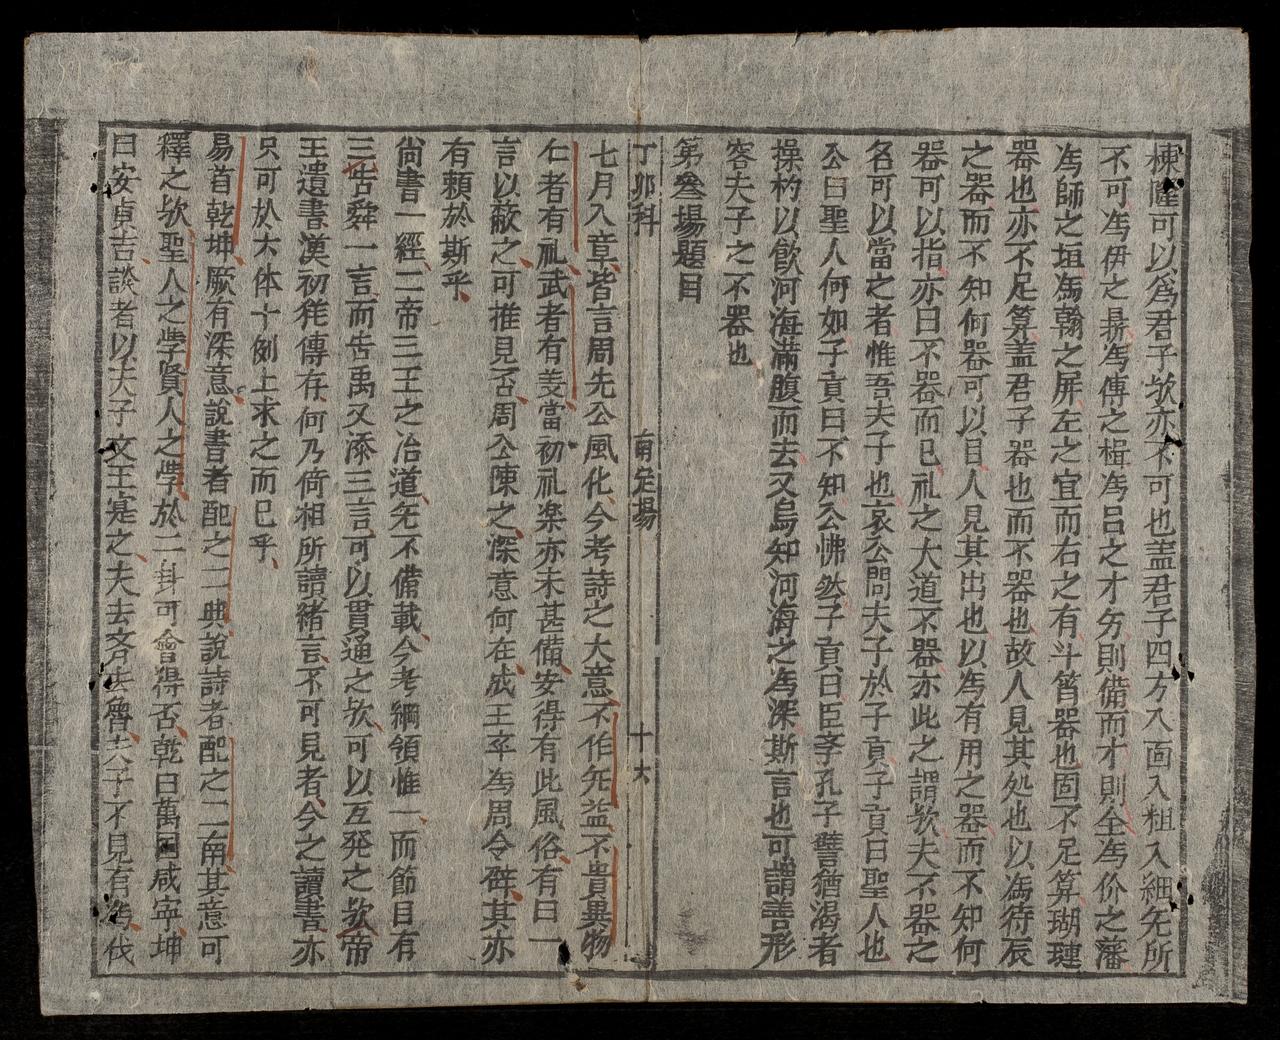 棟隆可以為君子欤亦不可也盖君子四方八面入粗入細无所
不可為伊之鼎為傅之楫為吕之才方則備而才則全為价之藩
為師之垣為翰之屏左之宜而右之有斗筲器也固不足算瑚璉
器也亦不足算盖君子器也而不器也故人見其处也以為待辰
之器而不知何器可以目人見其出也以為有用之器而不知何
器可以指亦曰不器而已礼之大道不器亦此之謂欤夫不器之
名可以當之者惟吾夫子也哀公問夫子於子貢子貢曰聖人也
公曰聖人何如子貢曰不知公怫然子貢曰臣李孔子譬猶渴者
操杓以飲河海滿腹而去又烏知河海之為深斯言也可謂善形
容夫子之不器也
第叁場題目
丁卯科 南定場 十六
七月八章皆言周先公風化今考詩之大意不作无益不貴異物
仁者有礼武者有羡當初礼楽亦未甚備安得有此風俗有曰一
言以蔽之可推見否周公陳之深意何在成王卒為周令辟其亦
有賴於斯乎
尙書一經二帝三王之治道先不備載今考綱領惟一而節目有
三告舜一言而告禹又添三言可以貫通之欤可以互発之欤帝
王遺書漢初徃傳存何乃倚相所讀緒言不可見者今之讀書亦
只可於大体十例上求之而已乎
易首乾坤厥有深意說書者配之二典說詩者配之二南其意可
釋之欤聖人之學賢人之學於二卦可會得否乾曰萬国咸寧坤
曰安貞吉談者以夫子文王寔之夫去齐去魯夫子不見有為伐